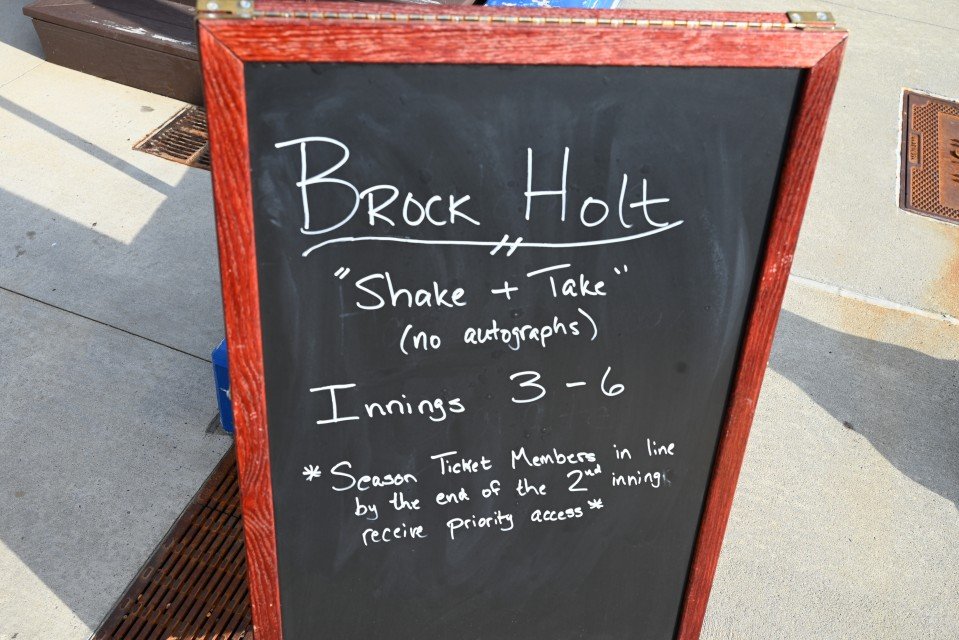 Brock Holt
"Shake + Take"
(no autographs)
Innings 3-6
*Season Ticket Members in line
by the end of the 2nd inning
receive priority access*